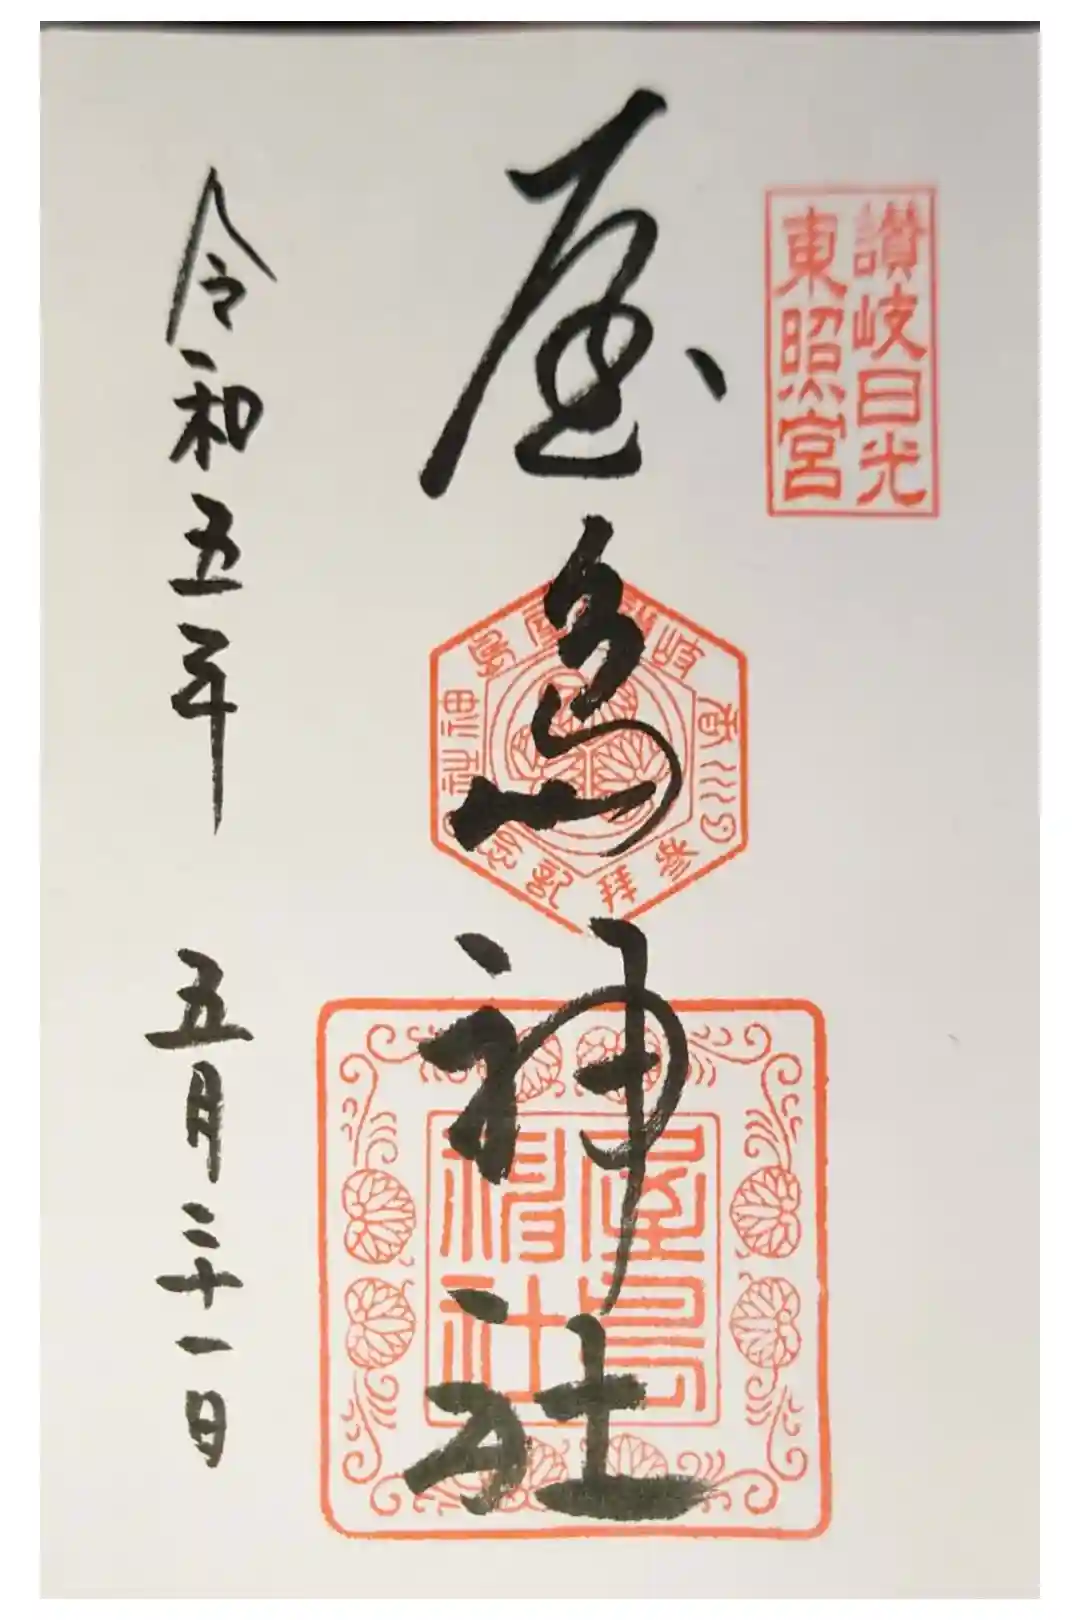 讃岐日光
東照宮
屋島神社
讃岐屋島神社
香川
参拝記念
屋島
神社
令和五年 五月二十一日